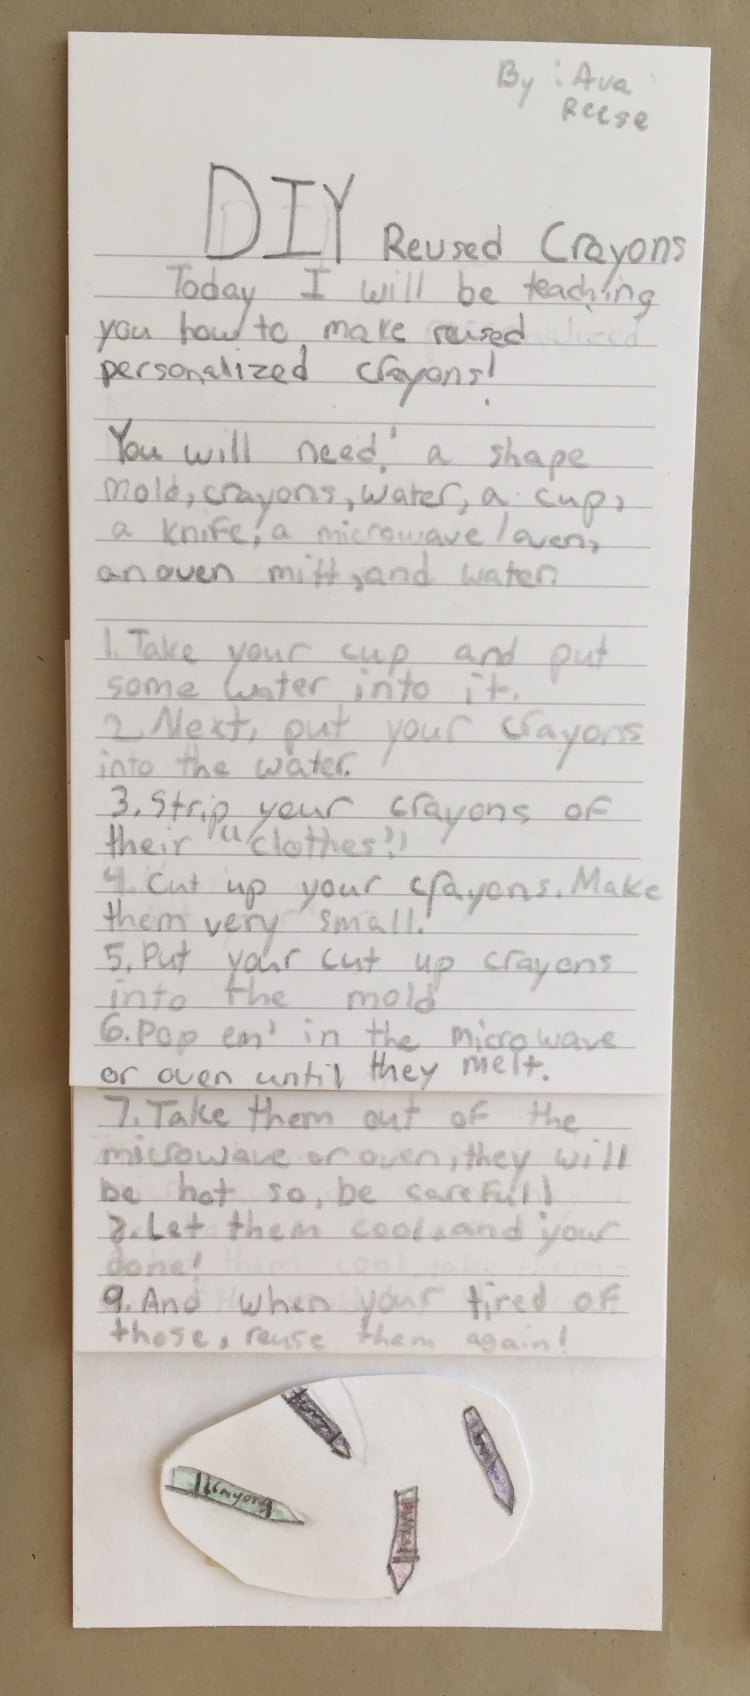 By : Ava
Reese
DIY Reused Crayons
Today I will be teaching
you how to make reused
personalized crayons!
You will need: a shape
mold, crayons, water, a cup,
a knife, a microwave/oven,
an oven mitt, and water
1. Take your cup and put
some water into it.
2. Next, put your crayons
into the water.
3. Strip your crayons of
their "clothes"!
4. Cut up your crayons. Make
them very small.
5. Put your cut up crayons
into the mold
6. Pop em' in the microwave
or oven until they melt.
7. Take them out of the
microwave or oven, they will
be hot so, be carefull
8. Let them cool, and your
done!
9. And when your tired of
those, reuse them again!
Crayons